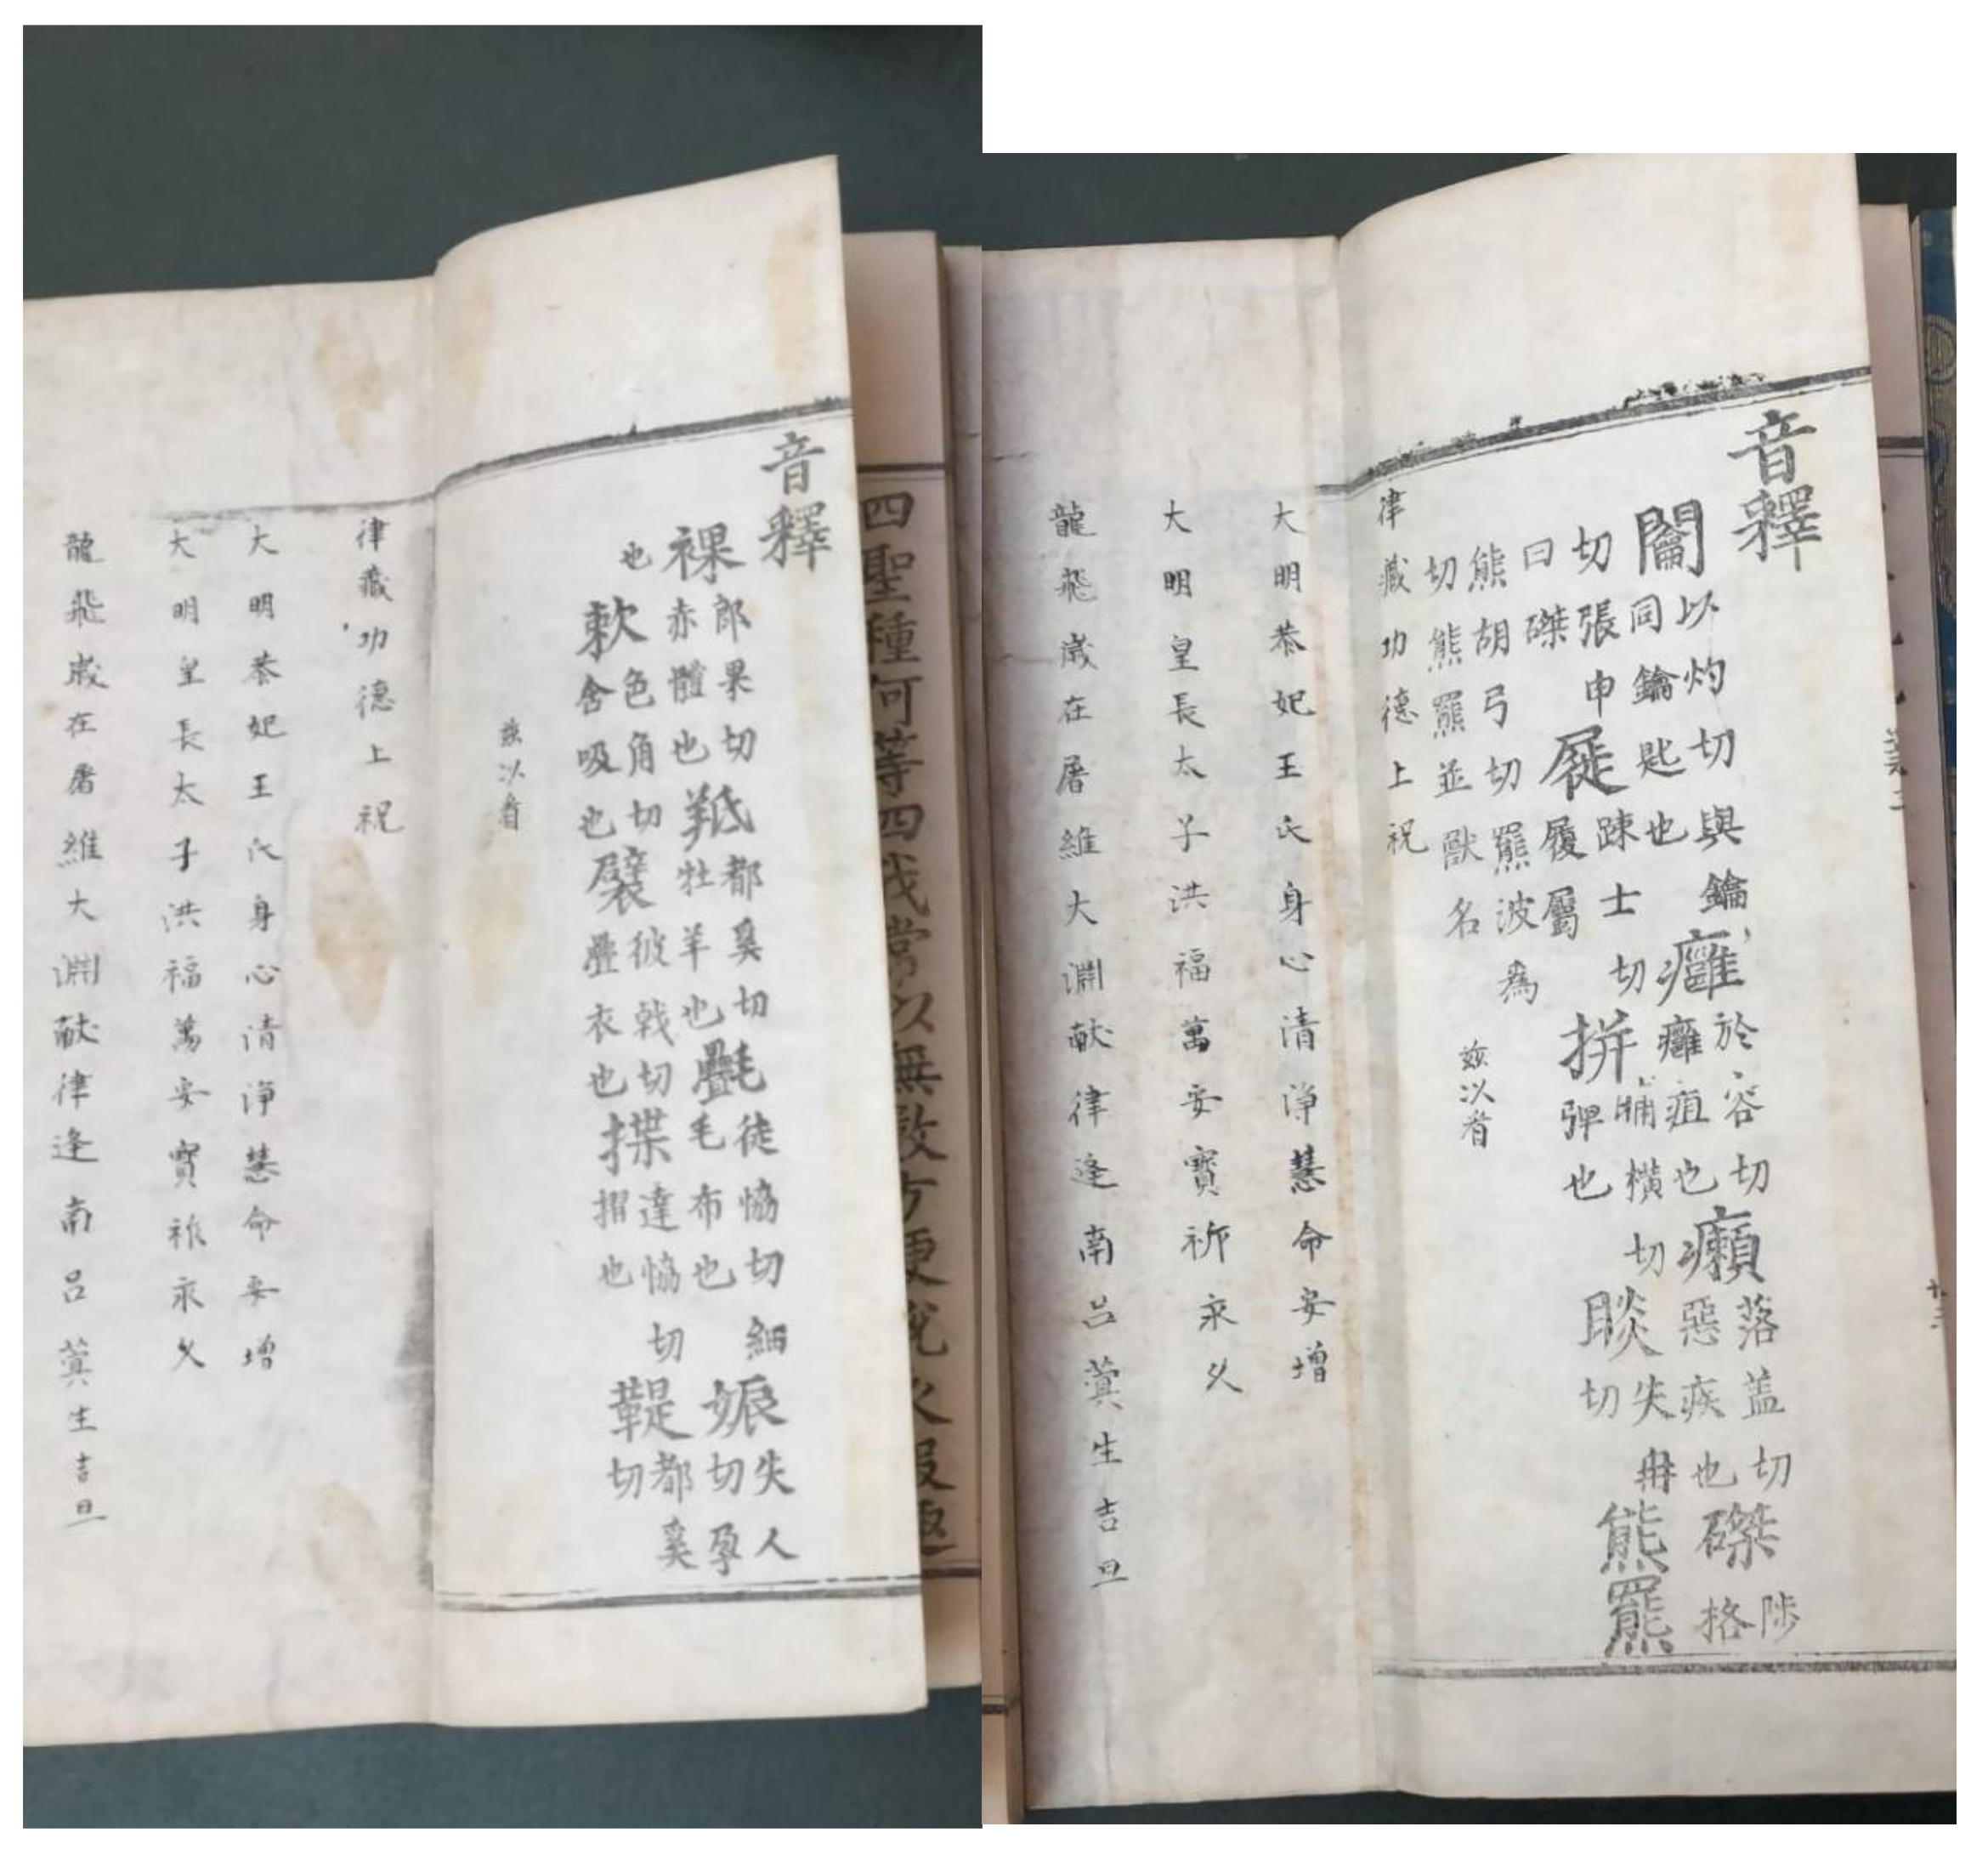 四聖種何等四我常以無數方便說衣服趣
音釋
裸郎果切赤體也羝都奚切牡羊也㲲徒恊切細毛布也娠失人切孕
也欶色角切含吸也襞彼戟切疊衣也揲達恊切摺也鞮都奚切
茲以者
律藏功德上祝
大明恭妃王氏身心清淨慧命安增
大明皇長太子洪福萬安寶祚永久
龍飛歲在屠維大淵献律逢南呂蓂生吉旦
音釋
𨷲以灼切與鑰同鑰匙也癰於容切癰疽也癩落蓋切惡疾也磔陟格
切張申曰磔屣疎士切履屬拼補橫切彈也睒失冉切熊羆
熊胡弓切羆波為切熊羆並獸名
茲以者
律藏功德上祝
大明恭妃王氏身心清淨慧命安增
大明皇長太子洪福萬安寶祚永久
龍飛歲在屠維大淵献律逢南呂蓂生吉旦